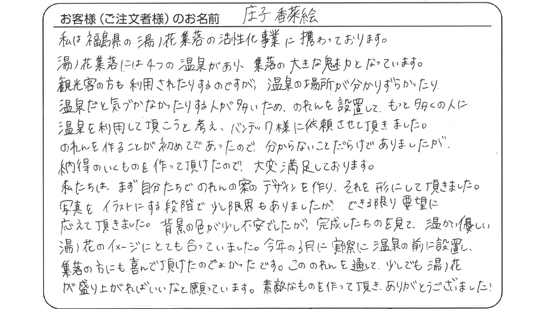 お客様(ご注文者様)のお名前 庄子 香菜絵
私は福島県の湯ノ花集落の活性化事業に携わっております。
湯ノ花集落には4つの温泉があり、集落の大きな魅力となっています。
観光客の方も利用されたりするのですが、温泉の場所が分かりずらかったり
温泉だと気づかなかったりする人が多いため、のれんを設置して、もっと多くの人に
温泉を利用して頂こうと考え、バンテック様に依頼させて頂きました。
のれんを作ることが初めてであったので、分からないことだらけでありましたが、
納得のいくものを作って頂けたので、大変満足しております。
私たちは、まず自分たちでのれんの案のデザインを作り、それを形にして頂きました。
写真をイラストにする段階で少し限界もありましたが、できる限り要望に
応えて頂きました。背景の色が少し不安でしたが、完成したものを見て、温かい優しい
湯ノ花のイメージにとても合っていました。今年の3月に実際に温泉の前に設置し、
集落の方にも喜んで頂けたのでよかったです。こののれんを通して、少しでも湯ノ花
が盛り上がればいいなと願っています。素敵なものを作って頂き、ありがとうございました!